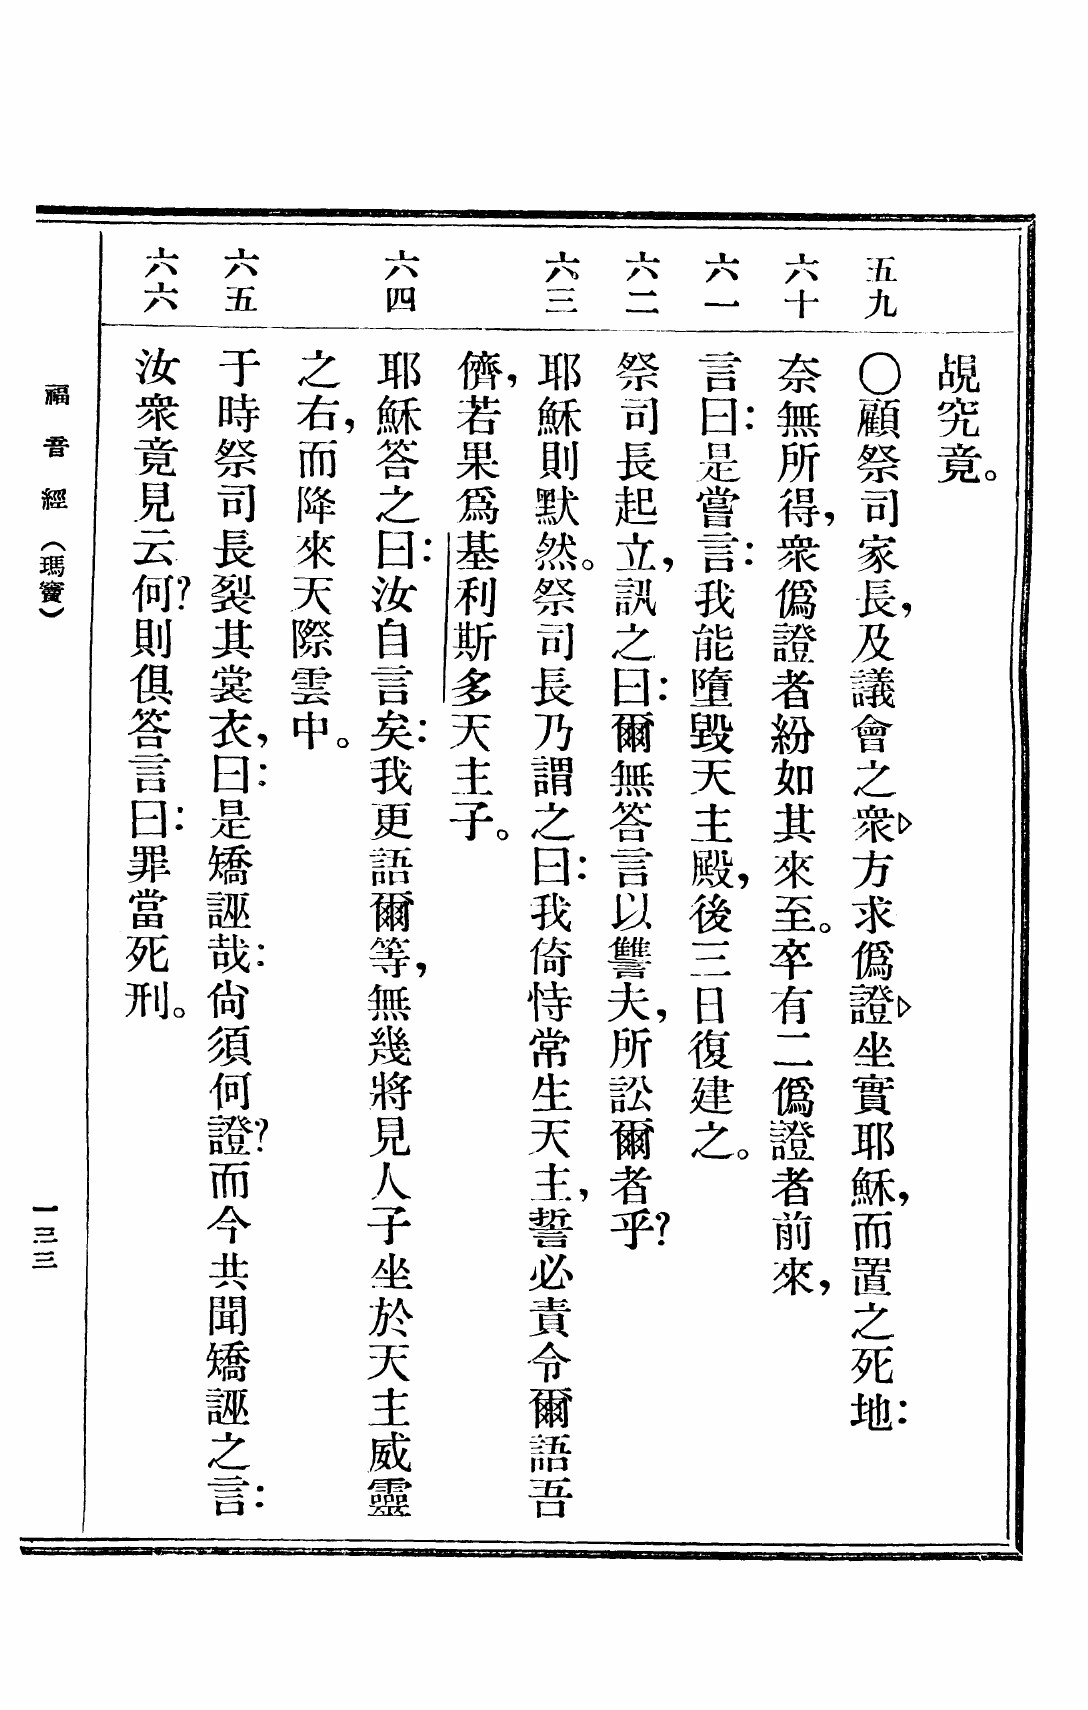 覘究竟。
五九
〇顧祭司家長,及議會之衆▷方求僞證▷坐實耶穌,而置之死地:
六十
奈無所得,衆僞證者紛如其來至。卒有二僞證者前來,
六一
言曰:是嘗言:我能墮毀天主殿,後三日復建之。
六二
祭司長起立,訊之曰:爾無答言以讐夫,所訟爾者乎?
六三
耶穌則默然。祭司長乃謂之曰:我倚恃常生天主,誓必責令爾語吾
儕,若果爲基利斯多天主子。
六四
耶穌答之曰:汝自言矣:我更語爾等,無幾將見人子坐於天主威靈
之右,而降來天際雲中。
六五
于時祭司長裂其裳衣,曰:是矯誣哉:尙須何證?而今共聞矯誣之言:
六六
汝衆竟見云何?則俱答言曰:罪當死刑。
福音經(瑪竇)
一三三